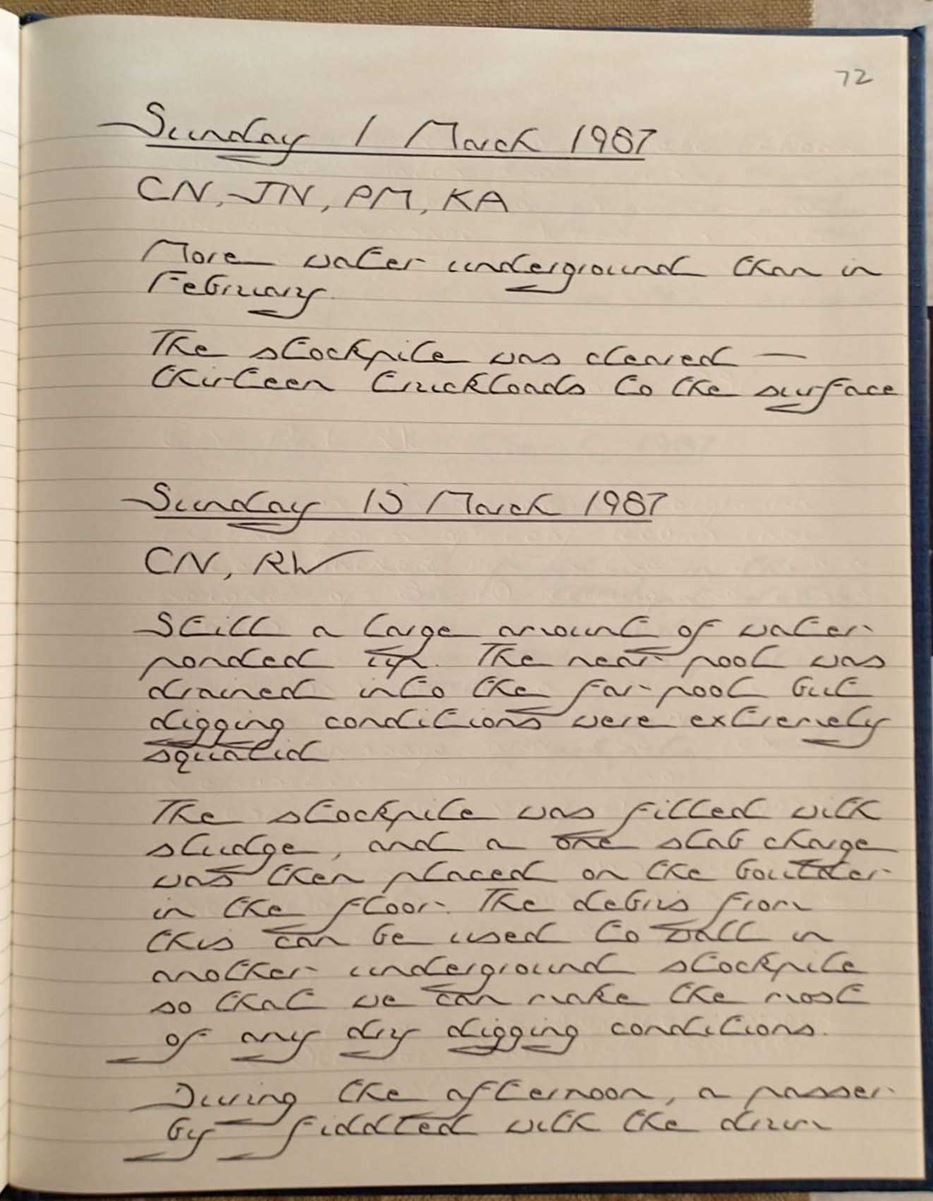 72
Sunday 1 March 1987
CN, JN, PM, KA
More water underground than in
February.
The stockpile was cleared —
thirteen truckloads to the surface
Sunday 15 March 1987
CN, RW
Still a large amount of water
ponded up. The near-pool was
drained into the far-pool but
digging conditions were extremely
squalid
The stockpile was filled with
sludge, and a one slab charge
was then placed on the boulder
in the floor. The debris from
this can be used to wall in
another underground stockpile
so that we can make the most
of any dry digging conditions.
During the afternoon, a passer-
by fiddled with the drum